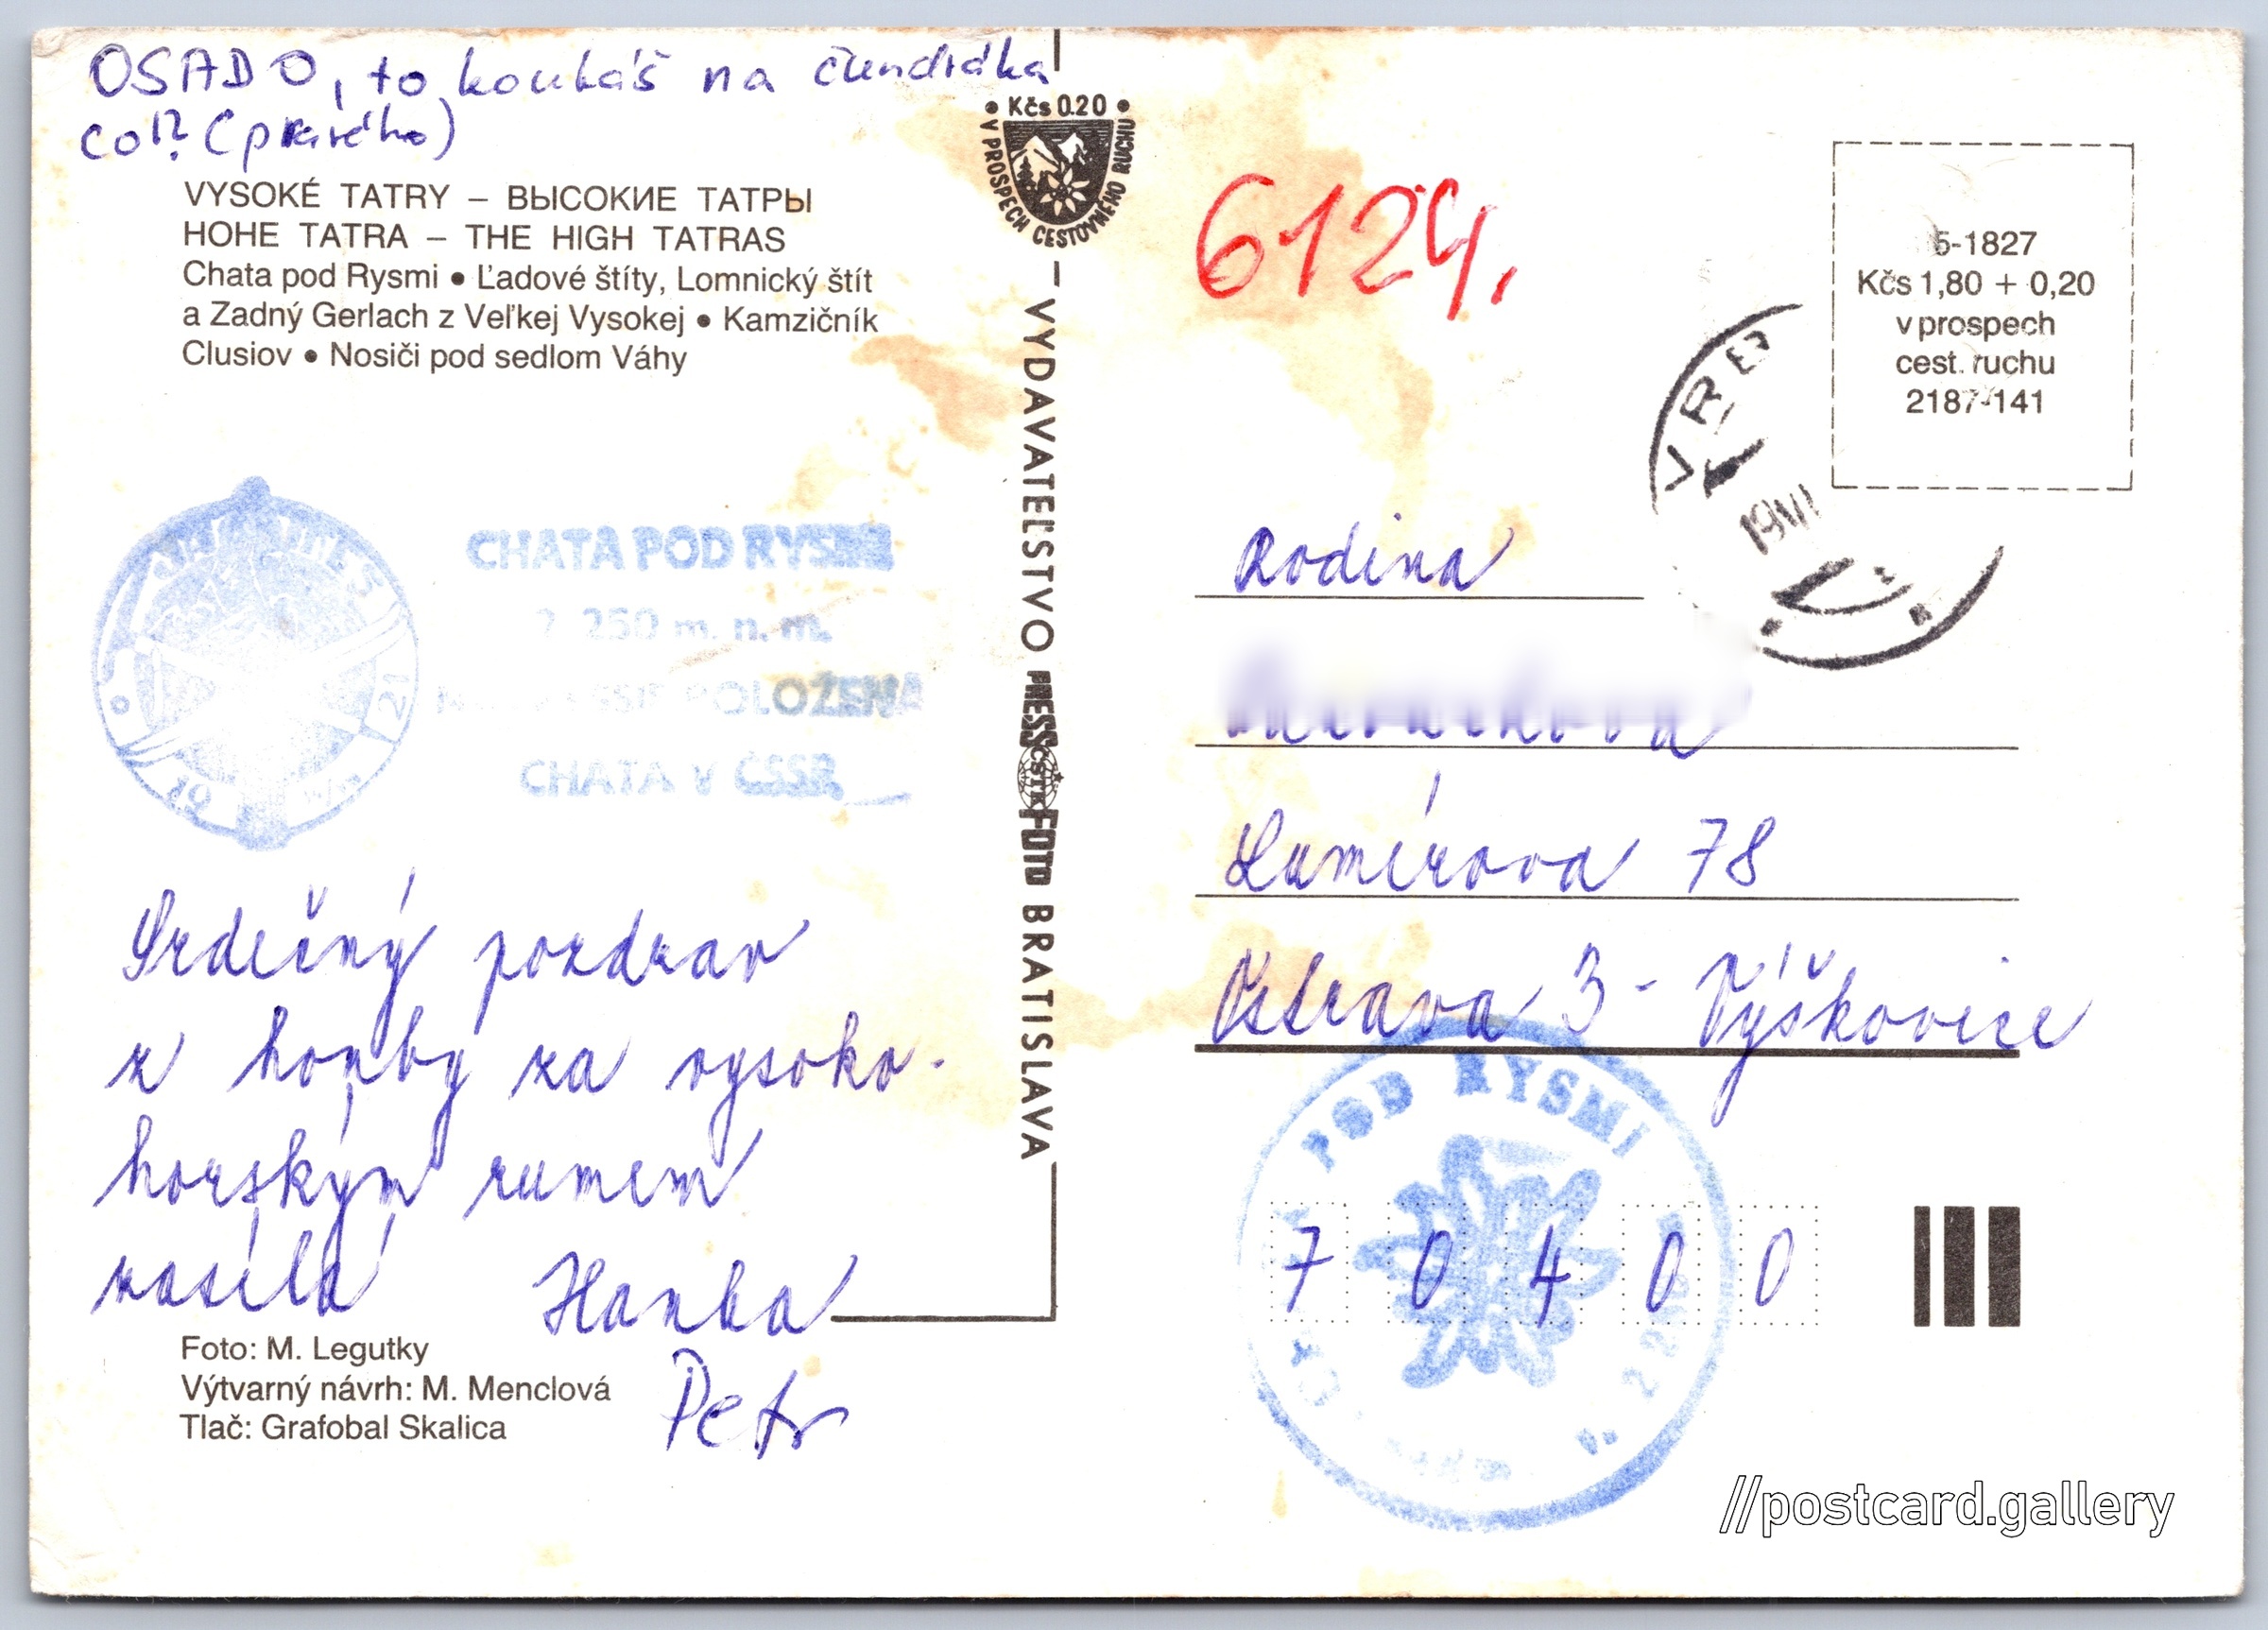 OSADO, to koukáš na čundráka
co!? (pravého)
VYSOKÉ TATRY – ВЫСОКИЕ ТАТРЫ
HOHE TATRA – THE HIGH TATRAS
Chata pod Rysmi • Ľadové štíty, Lomnický štít
a Zadný Gerlach z Veľkej Vysokej • Kamzičník
Clusiov • Nosiči pod sedlom Váhy
CHATA POD RYSMI
2 250 m. n. m.
POLOŽENA
CHATA V ČSSR
19
Srdečný pozdrav
z honby za vysoko-
horským rumem
zasílá Hanka
Petr
Foto: M. Legutky
Výtvarný návrh: M. Menclová
Tlač: Grafobal Skalica
• Kčs 0.20 •
V PROSPECH CESTOVNÉHO RUCHU
– VYDAVATEĽSTVO PRESSFOTO BRATISLAVA
ČSTK
6124,
5-1827
Kčs 1,80 + 0,20
v prospech
cest. ruchu
2187-141
Rodina
Lumírova 78
Ostrava 3 - Výškovice
POD RYSMI
7 0 4 0 0
//postcard.gallery